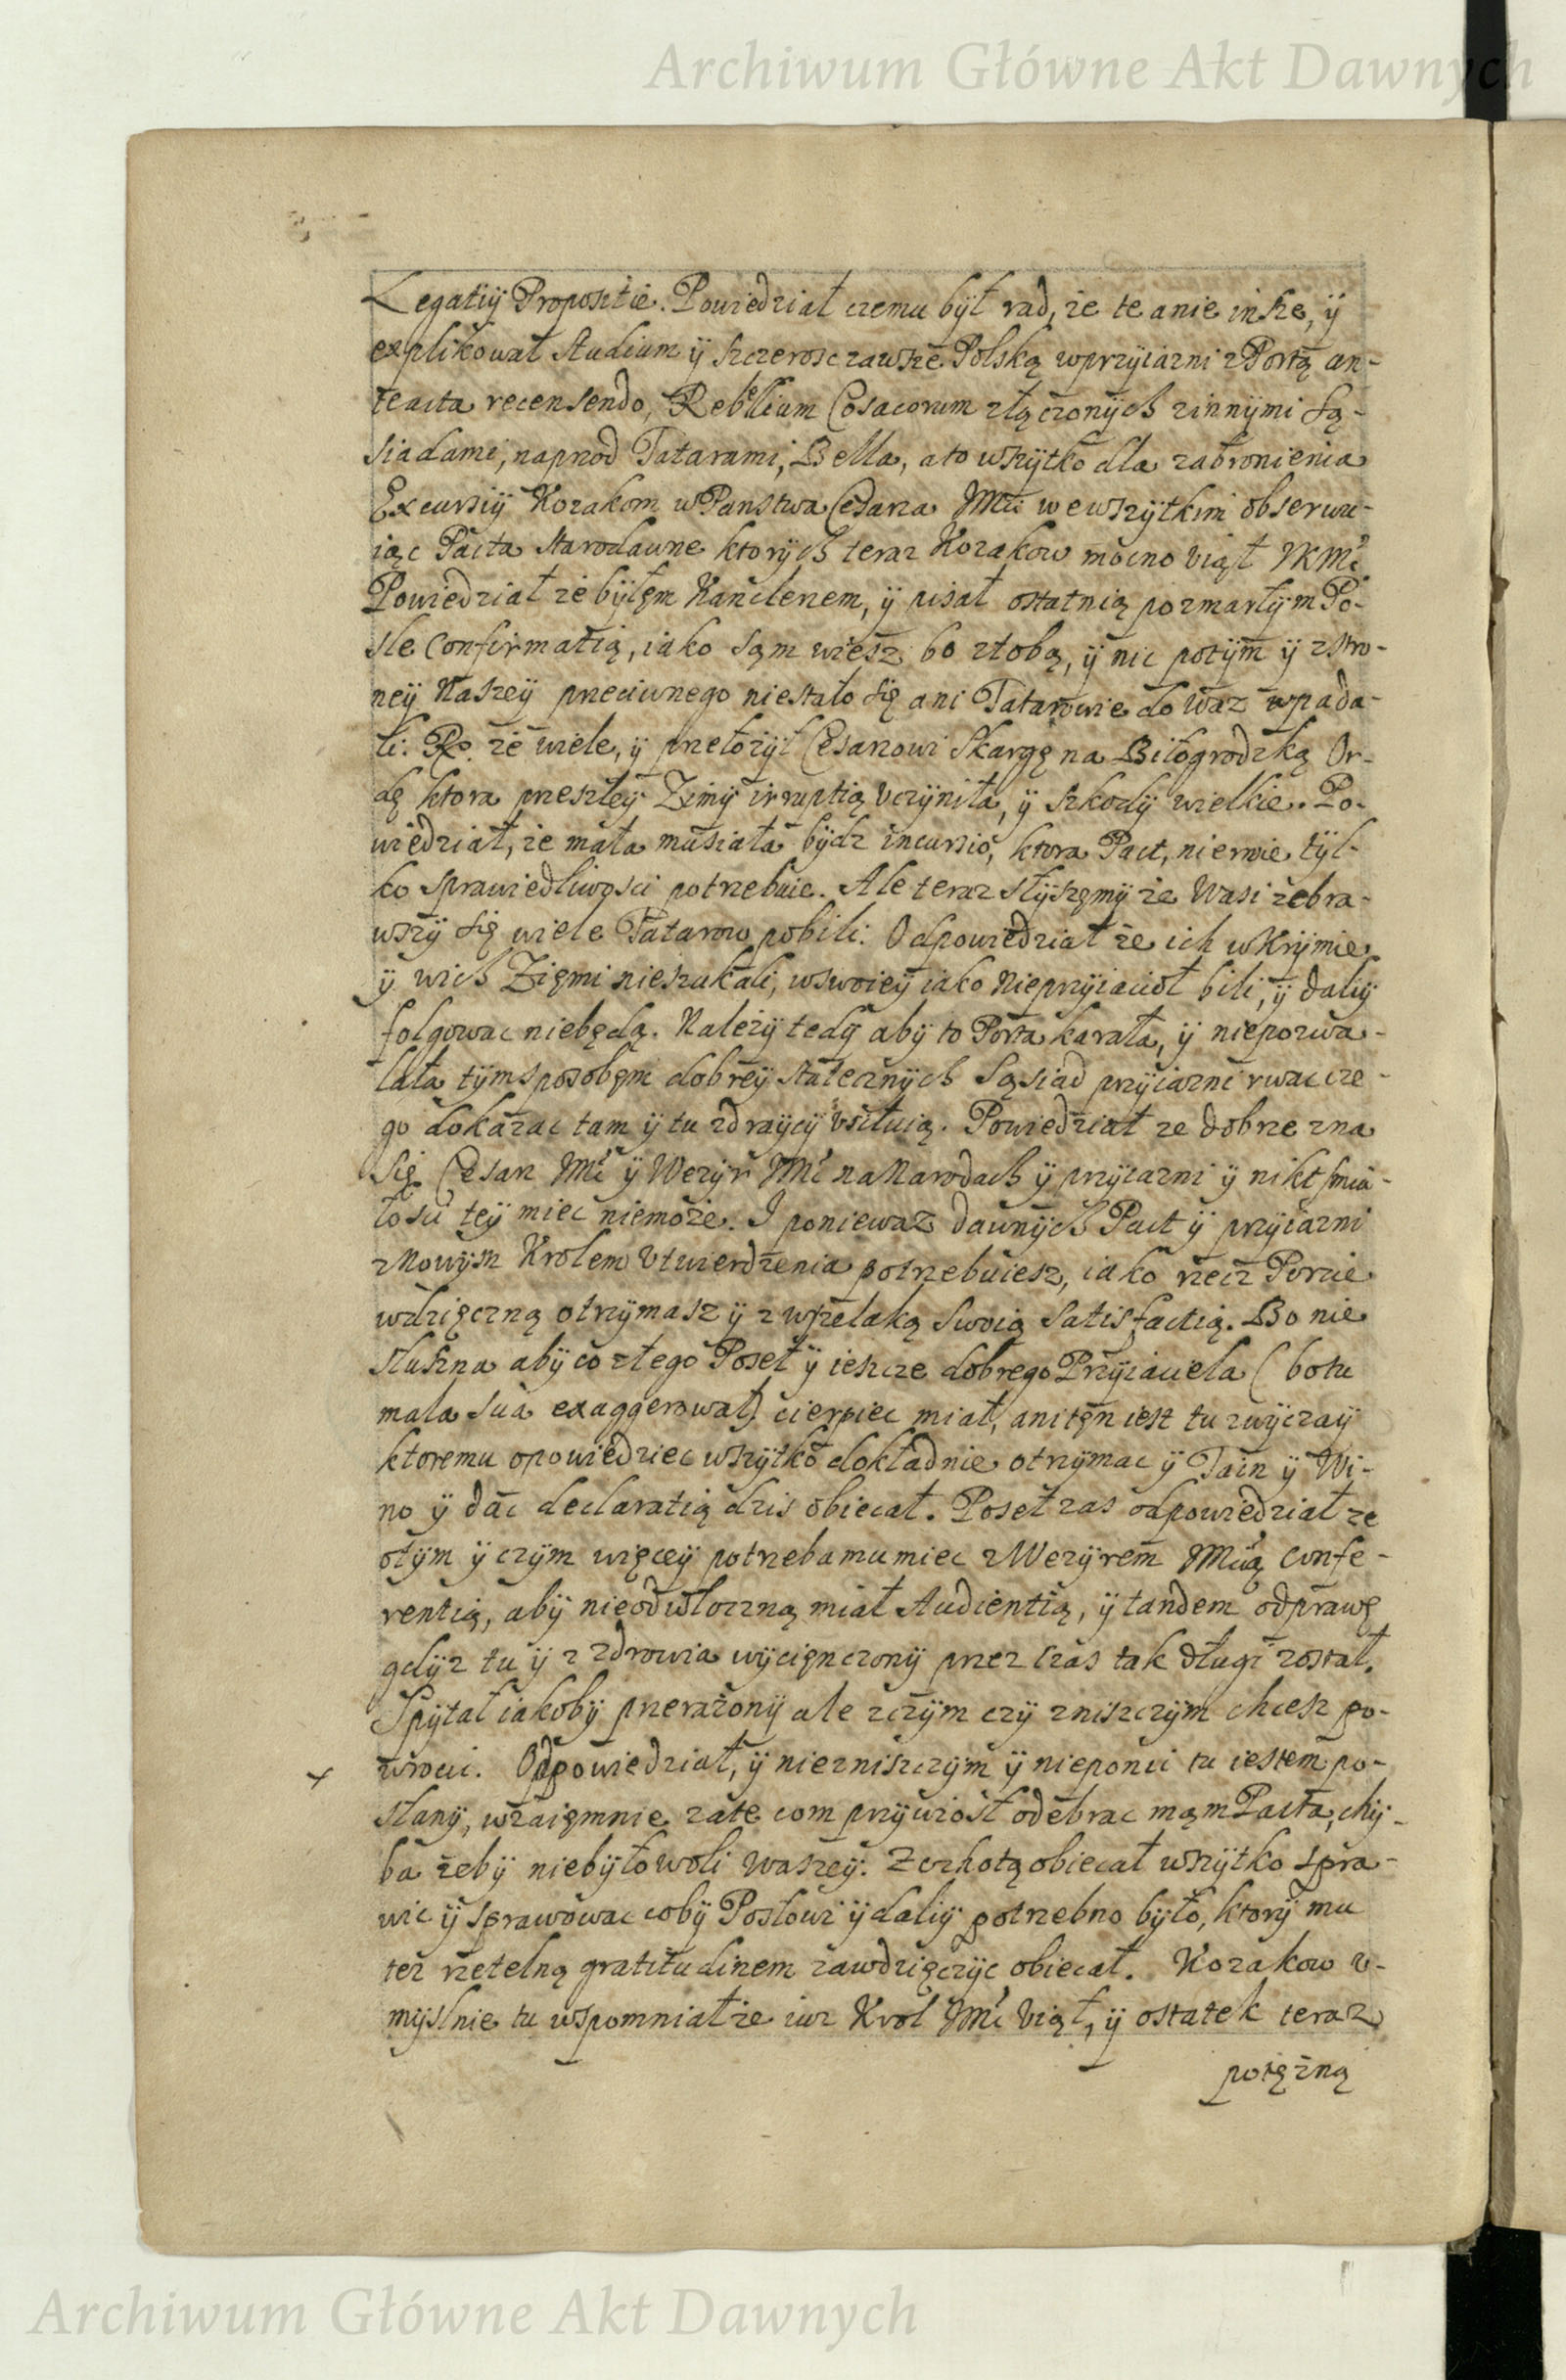 Archiwum Główne Akt Dawnych
Legatiÿ Propositie. Powiedział czemu bÿł rad, że te a nie insze, ÿ
explikował studium ÿ szczerosc zawsze Polską w przÿiazni z Portą an-
teacta recensendo, Rebellium Cosacorum złączonÿch z innÿmi Są-
siadami, naprzod Tatarami, Bella, a to wszÿtko dla zabronienia
Excursiÿ Kozakom w Panstwa Cesarza JMci we wszÿtkim obserwu-
iąc Pacta starodawne ktorÿch teraz Kozakow mocno viął JKMc
Powiedział że bÿłęm Kanclerzem, ÿ pisał ostatnią po zmarłÿm Po-
sle Confirmatią, iako sąm wiesz bo z tobą, ÿ nic potÿm ÿ z stro-
neÿ Naszeÿ przeciwnego niestało się ani Tatarowie do Waz wpada-
li: Ro. że wiele, ÿ przełożÿł Cesarzowi Skargę na Biłogrodzką Or-
dę ktora przeszłeÿ Zimÿ irruptią vczÿniła, ÿ szkodÿ wielkie. Po-
wiedział, że mała musiała bÿdz incursio, ktora Pact, nierwie tÿl-
ko sprawiedliwosci potrzebuie. Ale teraz słÿszęmÿ że Wasi zebra-
wszÿ się wiele Tatarow pobili: Odpowiedział że ich w Krÿmie
ÿ w ich Zięmi nieszukali, w swoieÿ iako Nieprzÿiacioł bili, ÿ daliÿ
folgowac niebędą. Należÿ tedÿ abÿ to Porta karała, ÿ niepozwa-
lała tÿm sposobęm dobreÿ statecznÿch Sąsiad przÿiazni rwac cze-
go dokazac tam ÿ tu zdraÿcÿ vsiłuią. Powiedział ze dobrze zna
się Cesarz JMc ÿ Wezÿr JMc na Narodach ÿ przÿiazni ÿ nikt smia-
łosci teÿ miec niemoże. I poniewaz dawnÿch Pact ÿ przÿiazni
z Nowÿm Krolem vtwierdzenia potrzebuiesz, iako rzecz Porcie
wdzięczną otrzÿmasz ÿ z wszelaką swoią satisfactią. Bo nie
słuszna abÿ co złego Poseł ÿ ieszcze dobrego Przÿiaciela (bo tu
mala sua exaggerował) cierpiec miał, ani tęn iest tu zwÿczaÿ
ktoremu opowiedziec wszÿtko dokładnie otrzÿmac ÿ Tain ÿ Wi-
no ÿ dac declaratią dzis obiecał. Poseł zas odpowiedział ze
o tÿm ÿ czÿm więceÿ potrzeba mu miec z Wezÿrem JMcią Confe-
rentią, abÿ nieodwłoczną miał Audientią, ÿ tandem odprawę
gdÿz tu ÿ z zdrowia wÿcięnczonÿ przez czas tak długi został.
Spÿtał iakobÿ przerażonÿ ale z czÿm czÿ z niszczÿm chcesz po-
wrocic. Odpowiedział, ÿ nie z niszczÿm ÿ nie po nici tu iestem po-
słanÿ, wzaięmnie zate com przÿwiosł odebrac mąm Pacta, chÿ-
ba zebÿ niebÿło woli waszeÿ. Z ochotą obiecał wszÿtko spra-
wic ÿ sprawowac cobÿ Posłowi ÿ daliÿ potrzebno bÿło, ktorÿ mu
też rzetelną gratitudinem zawdzięczÿc obiecał. Kozakow v-
mÿslnie tu wspomniał że iuz Krol JMc viął, ÿ ostatek teraz
potęzną
Archiwum Główne Akt Dawnych